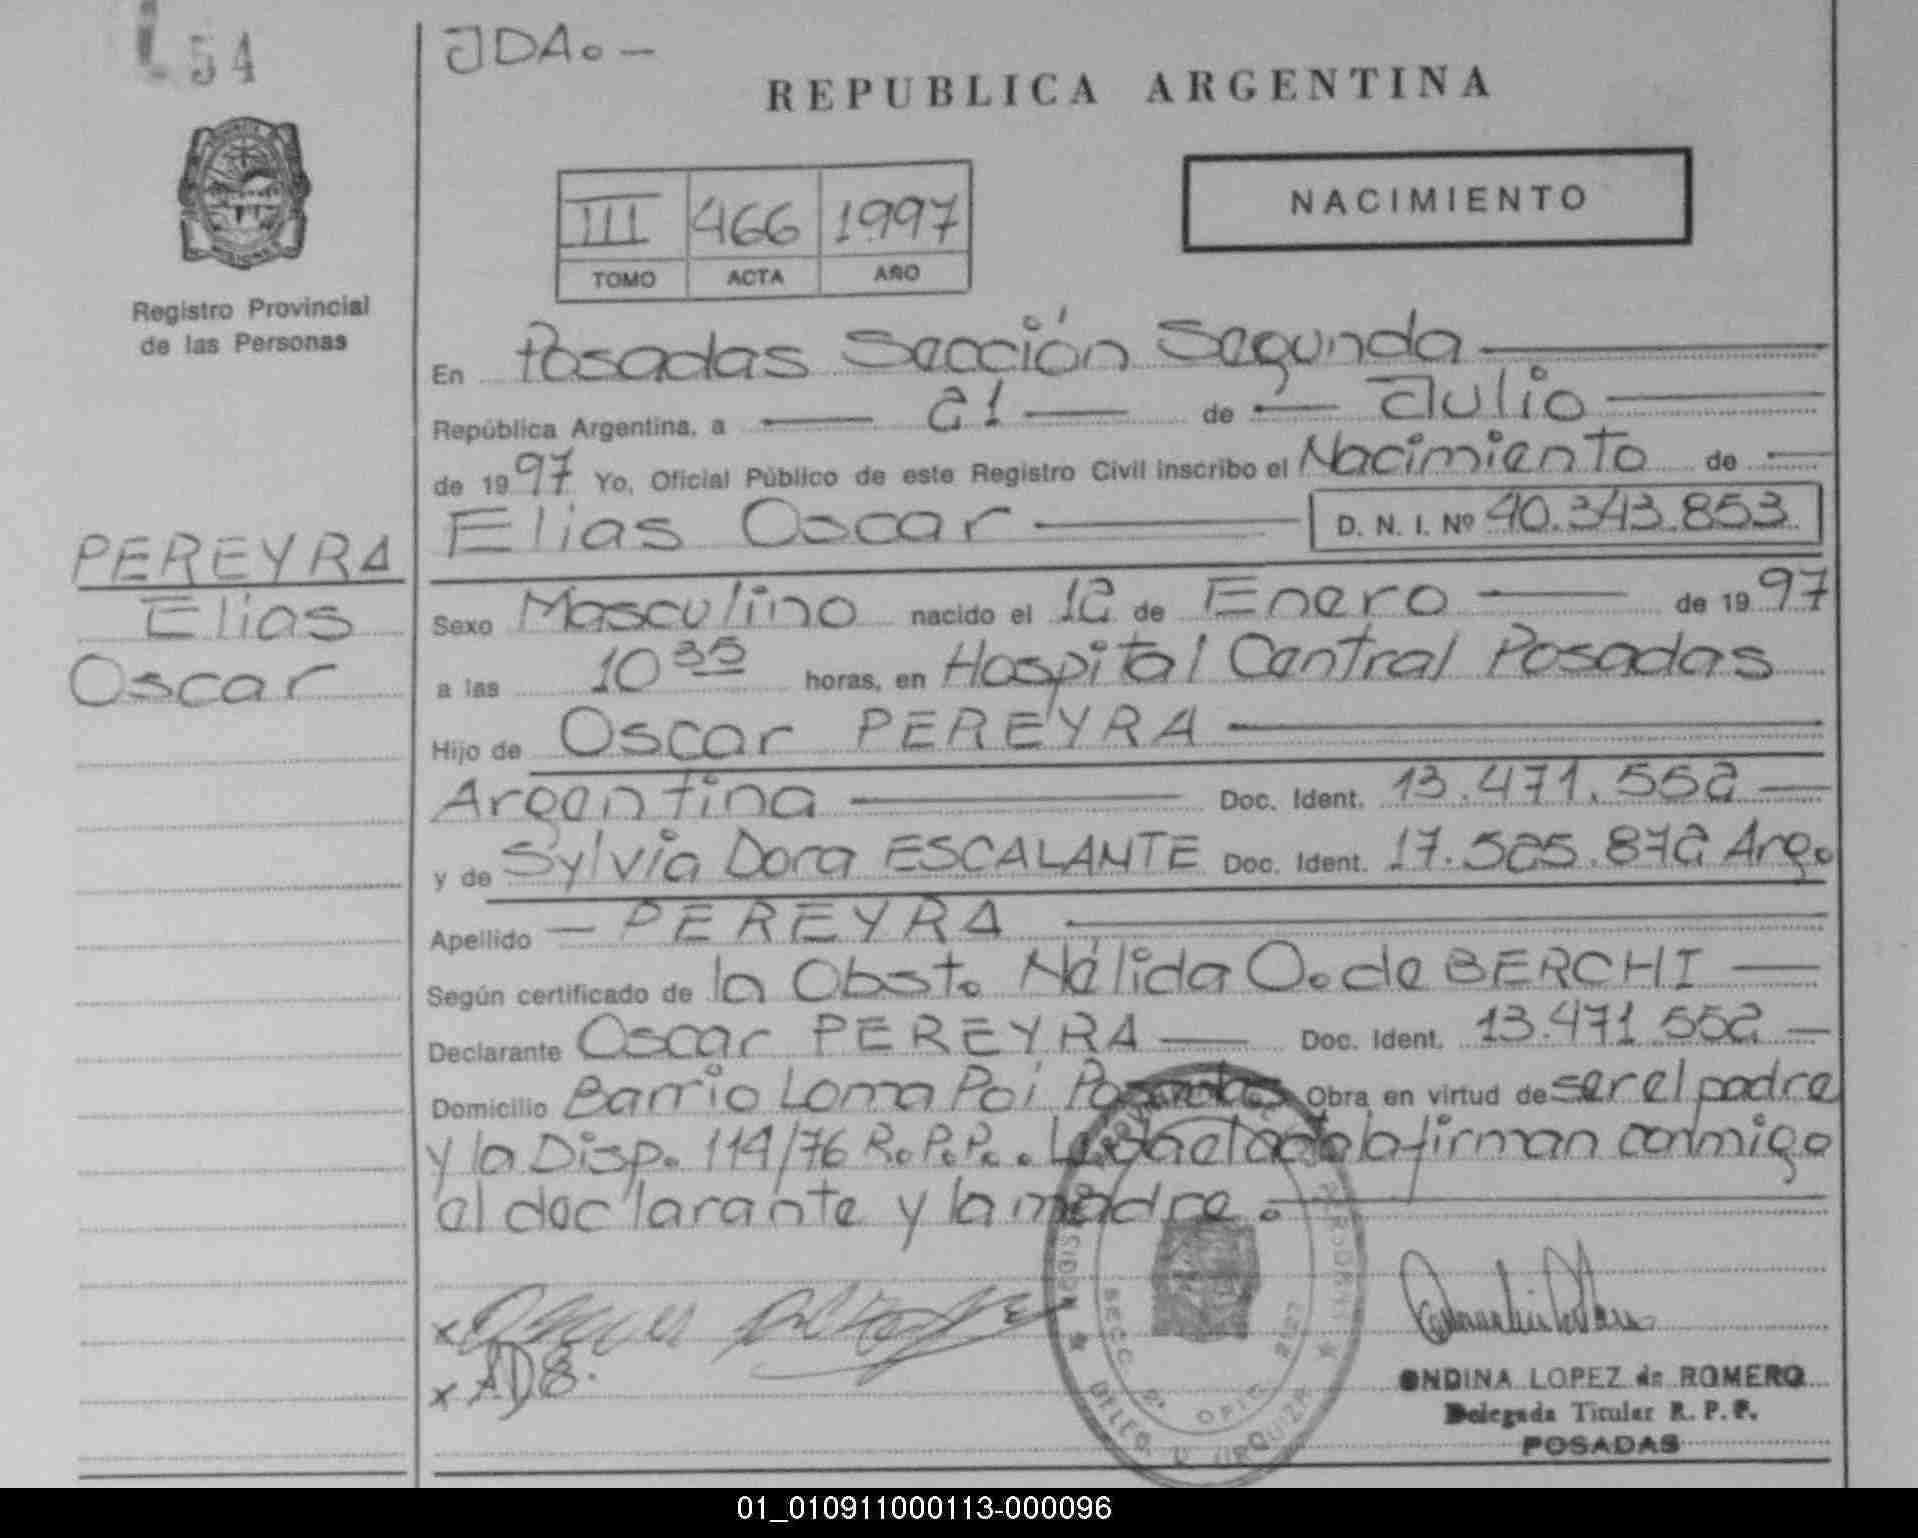 54
JDA. -
REPUBLICA ARGENTINA
III 466 1997
TOMO ACTA AÑO
NACIMIENTO
Registro Provincial
de las Personas
En Posadas Sección Segunda
República Argentina, a 21 de Julio
de 1997 Yo, Oficial Público de este Registro Civil inscribo el Nacimiento de
Elias Oscar D. N. I. Nº 40.343.853
PEREYRA
Elias
Oscar
Sexo Masculino nacido el 12 de Enero de 1997
a las 10 35 horas, en Hospital Central Posadas
Hijo de Oscar PEREYRA
Argentina Doc. Ident. 13.471.552
y de Sylvia Dora ESCALANTE Doc. Ident. 17.525.872 Arg.
Apellido PEREYRA
Según certificado de la Obst. Nélida O. de BERCHI
Declarante Oscar PEREYRA Doc. Ident. 13.471.552
Domicilio Barrio Loma Poi Posadas Obra en virtud de ser el padre
y la Disp. 114/76 R.P.P.. Leida el acta la firman conmigo
el declarante y la madre.
ONDINA LOPEZ de ROMERO
Delegada Titular R. P. P.
POSADAS
SECC. 2a. OFIC. 2127
DELEG. V. URQUIZA
01_010911000113-000096